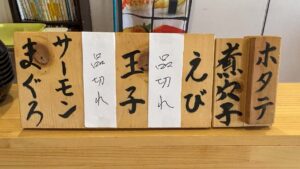 ホタテ
煮穴子
えび
品切れ
玉子
品切れ
サーモン
まぐろ